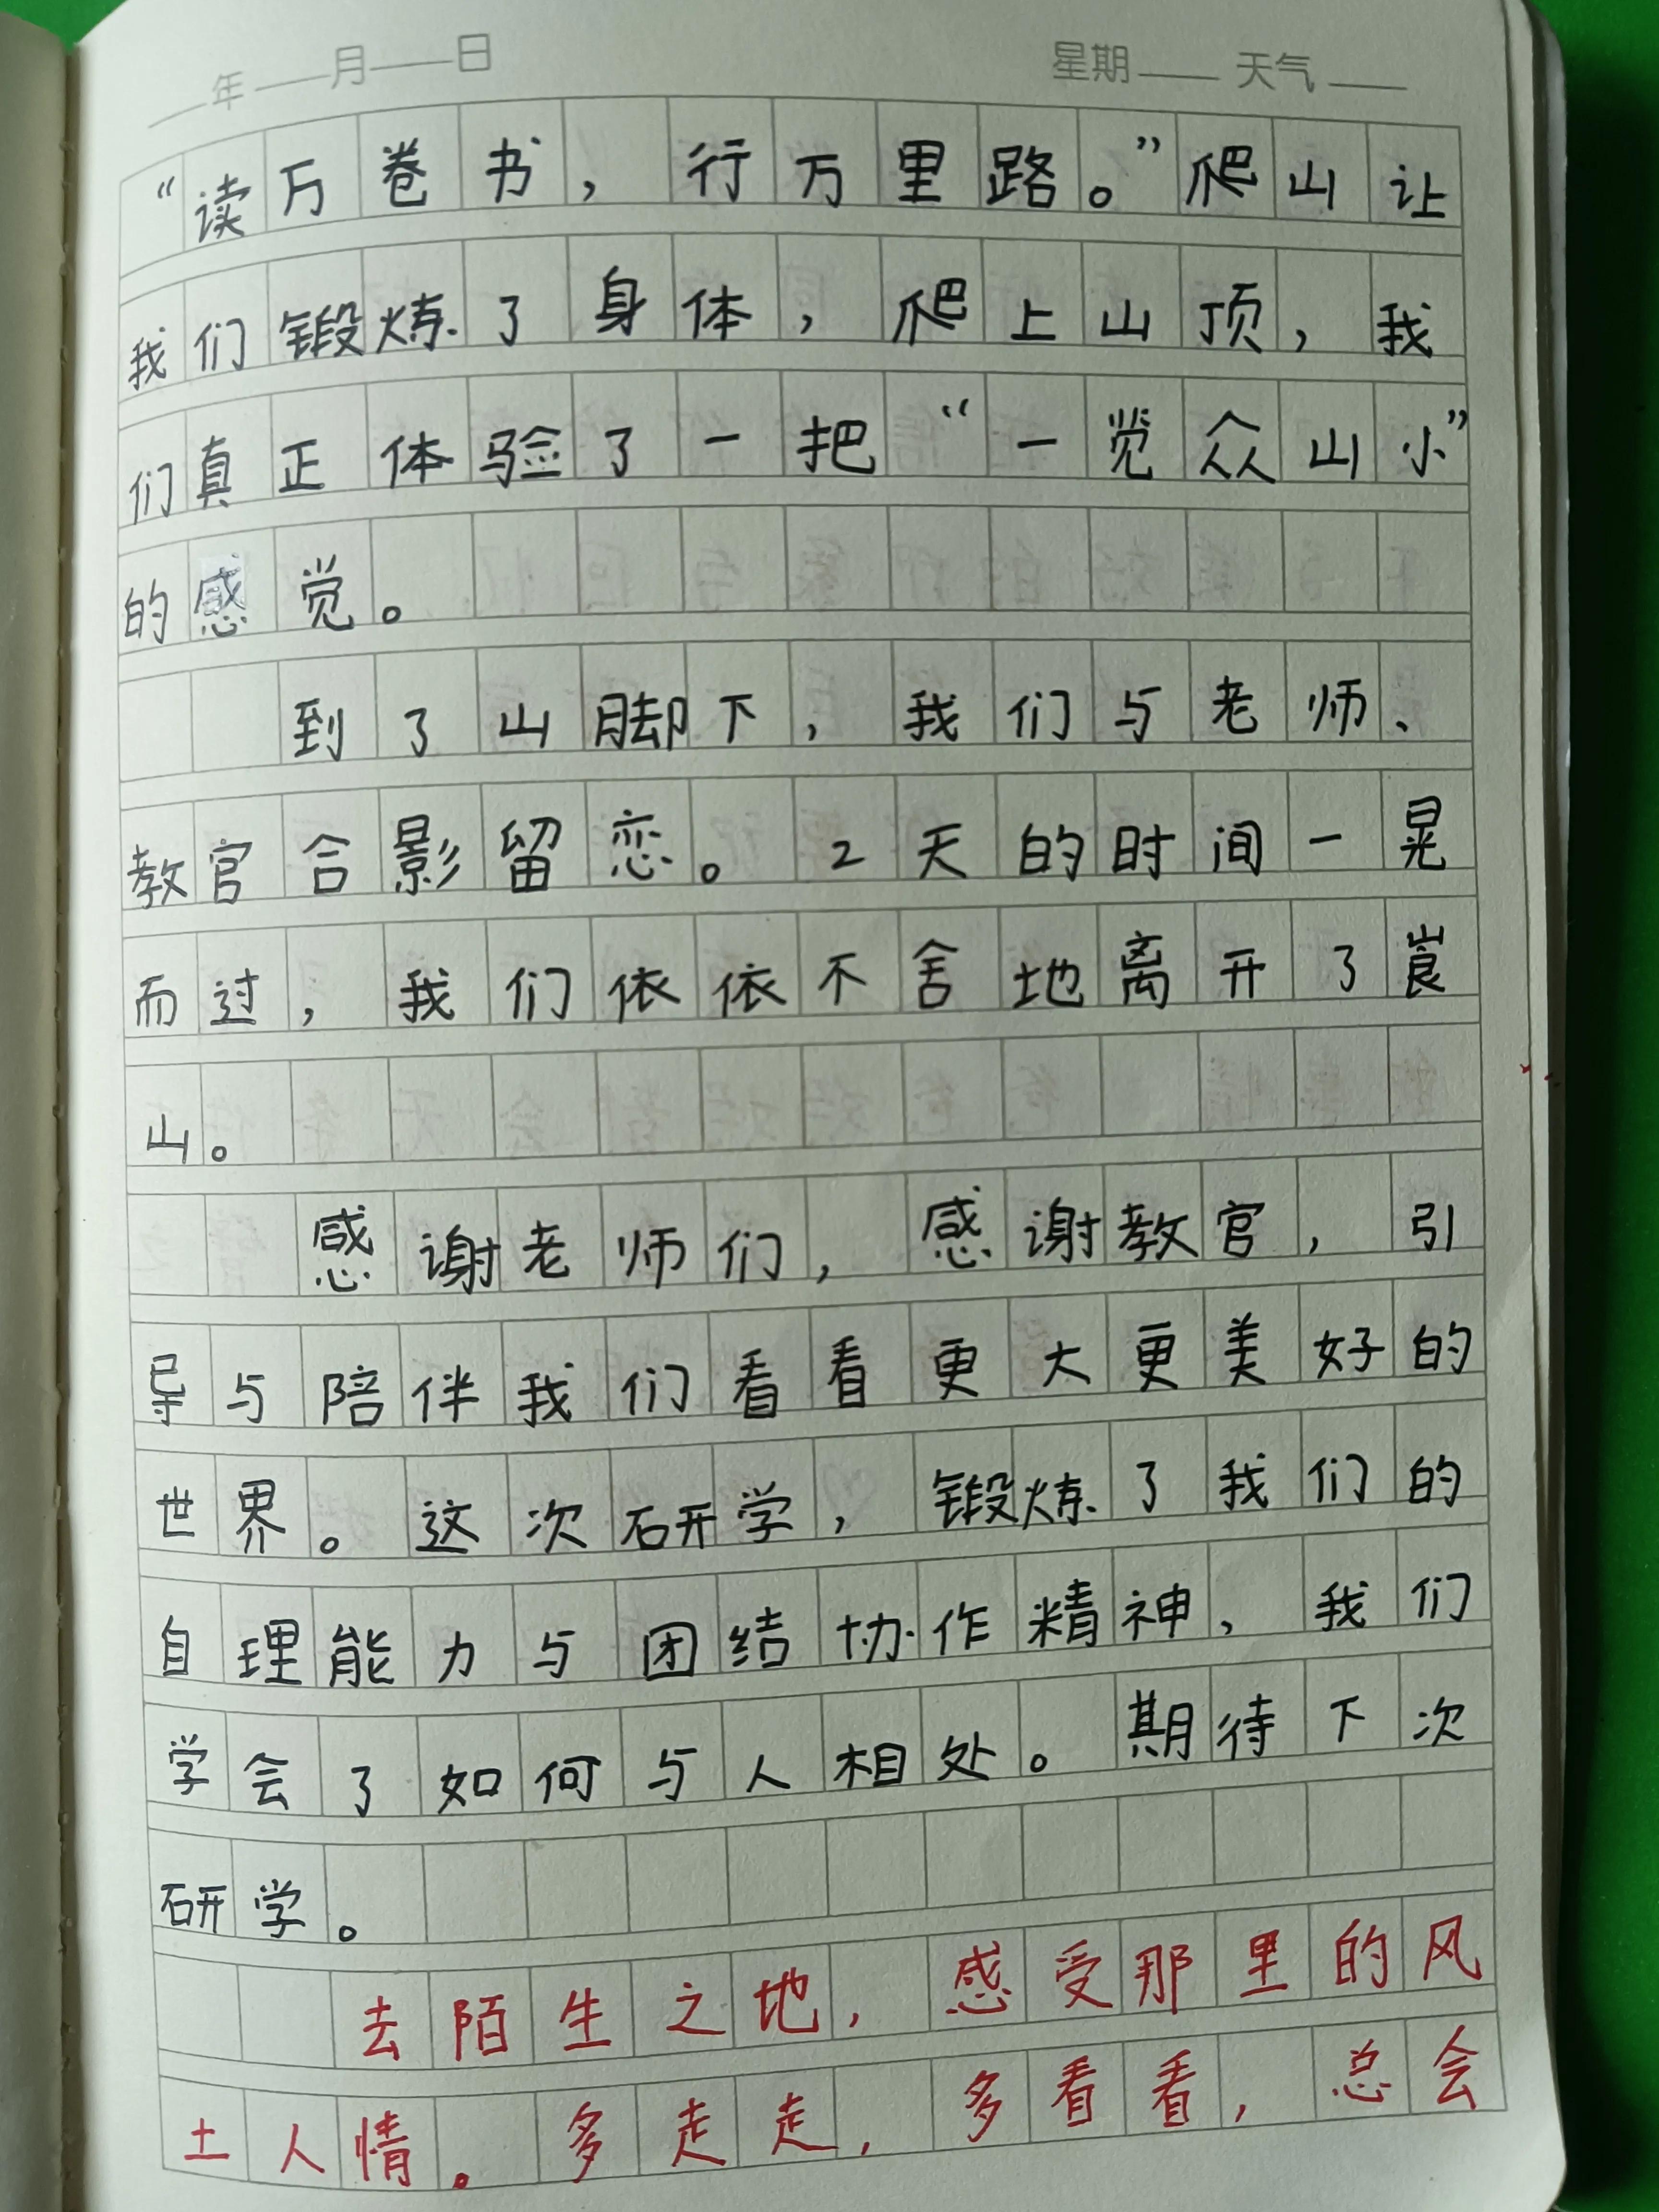 年 月 日 星期 天气
“读万卷书，行万里路。”爬山让
我们锻炼了身体，爬上山顶，我
们真正体验了一把“一觉众山小”
的感觉。
到了山脚下，我们与老师、
教官合影留恋。2天的时间一晃
而过，我们依依不舍地离开了崀
山。
感谢老师们，感谢教官，引
导与陪伴我们看看更大更美好的
世界。这次研学，锻炼了我们的
自理能力与团结协作精神，我们
学会了如何与人相处。期待下次
研学。
去陌生之地，感受那里的风
土人情。多走走，多看看，总会